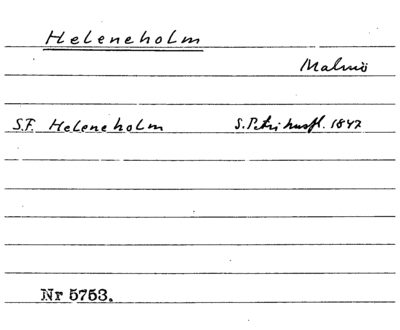 Heleneholm
Malmö
S.F. Heleneholm S. Petri husfl. 1847
Nr 5753.